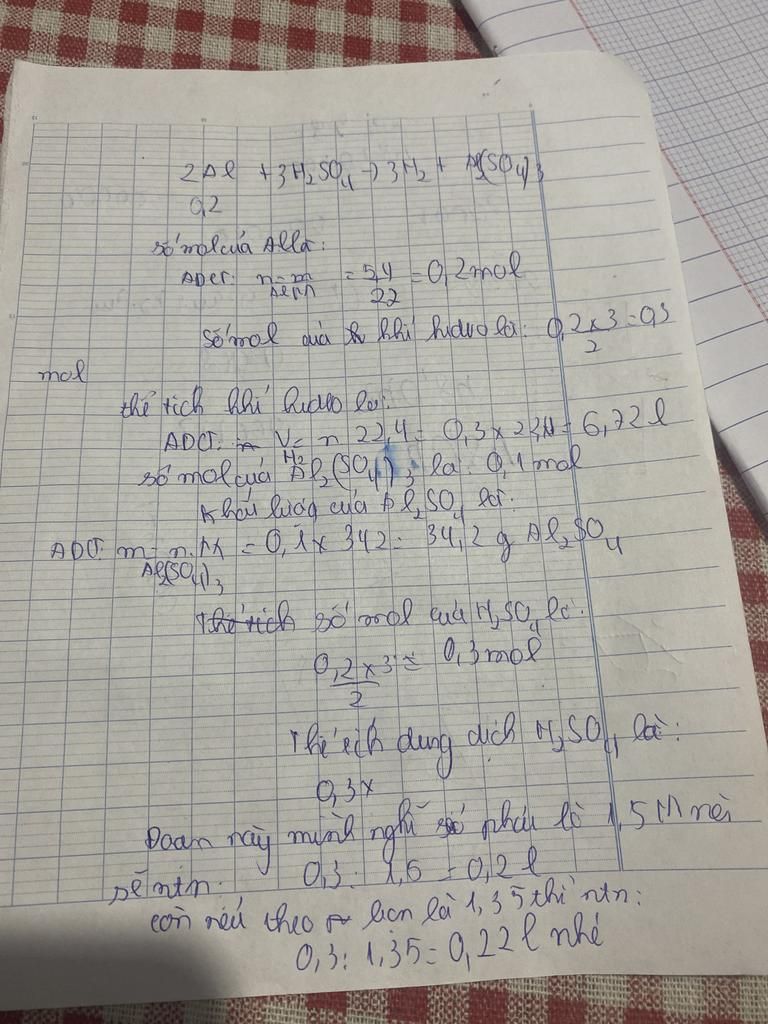 2Al + 3H₂SO₄ → 3H₂ + Al₂(SO₄)₃
0,2
số mol của Al là:
ADCT: n = m/M = 5,4/22 = 0,2 mol
Al
số mol của khí hidro là: 0,2 x 3/2 = 0,3
mol
thể tích khí hidro là:
ADCT: V = n 22,4 = 0,3 x 22,4 = 6,72 l
H₂
số mol của Al₂(SO₄)₃ là: 0,1 mol
Khối lượng của Al₂SO₄ là:
ADCT: m = n.M = 0,1 x 342 = 34,2 g Al₂SO₄
Al₂(SO₄)₃
Thể tích số mol của H₂SO₄ là:
0,2 x 3/2 = 0,3 mol
Thể tích dung dịch H₂SO₄ là:
0,3x
Đoạn này mình nghĩ số phải là 1,5 M nên
sẽ ntn. 0,3 : 1,5 = 0,2 l
còn nếu theo bạn là 1,35 thì ntn:
0,3 : 1,35 = 0,22 l nhé